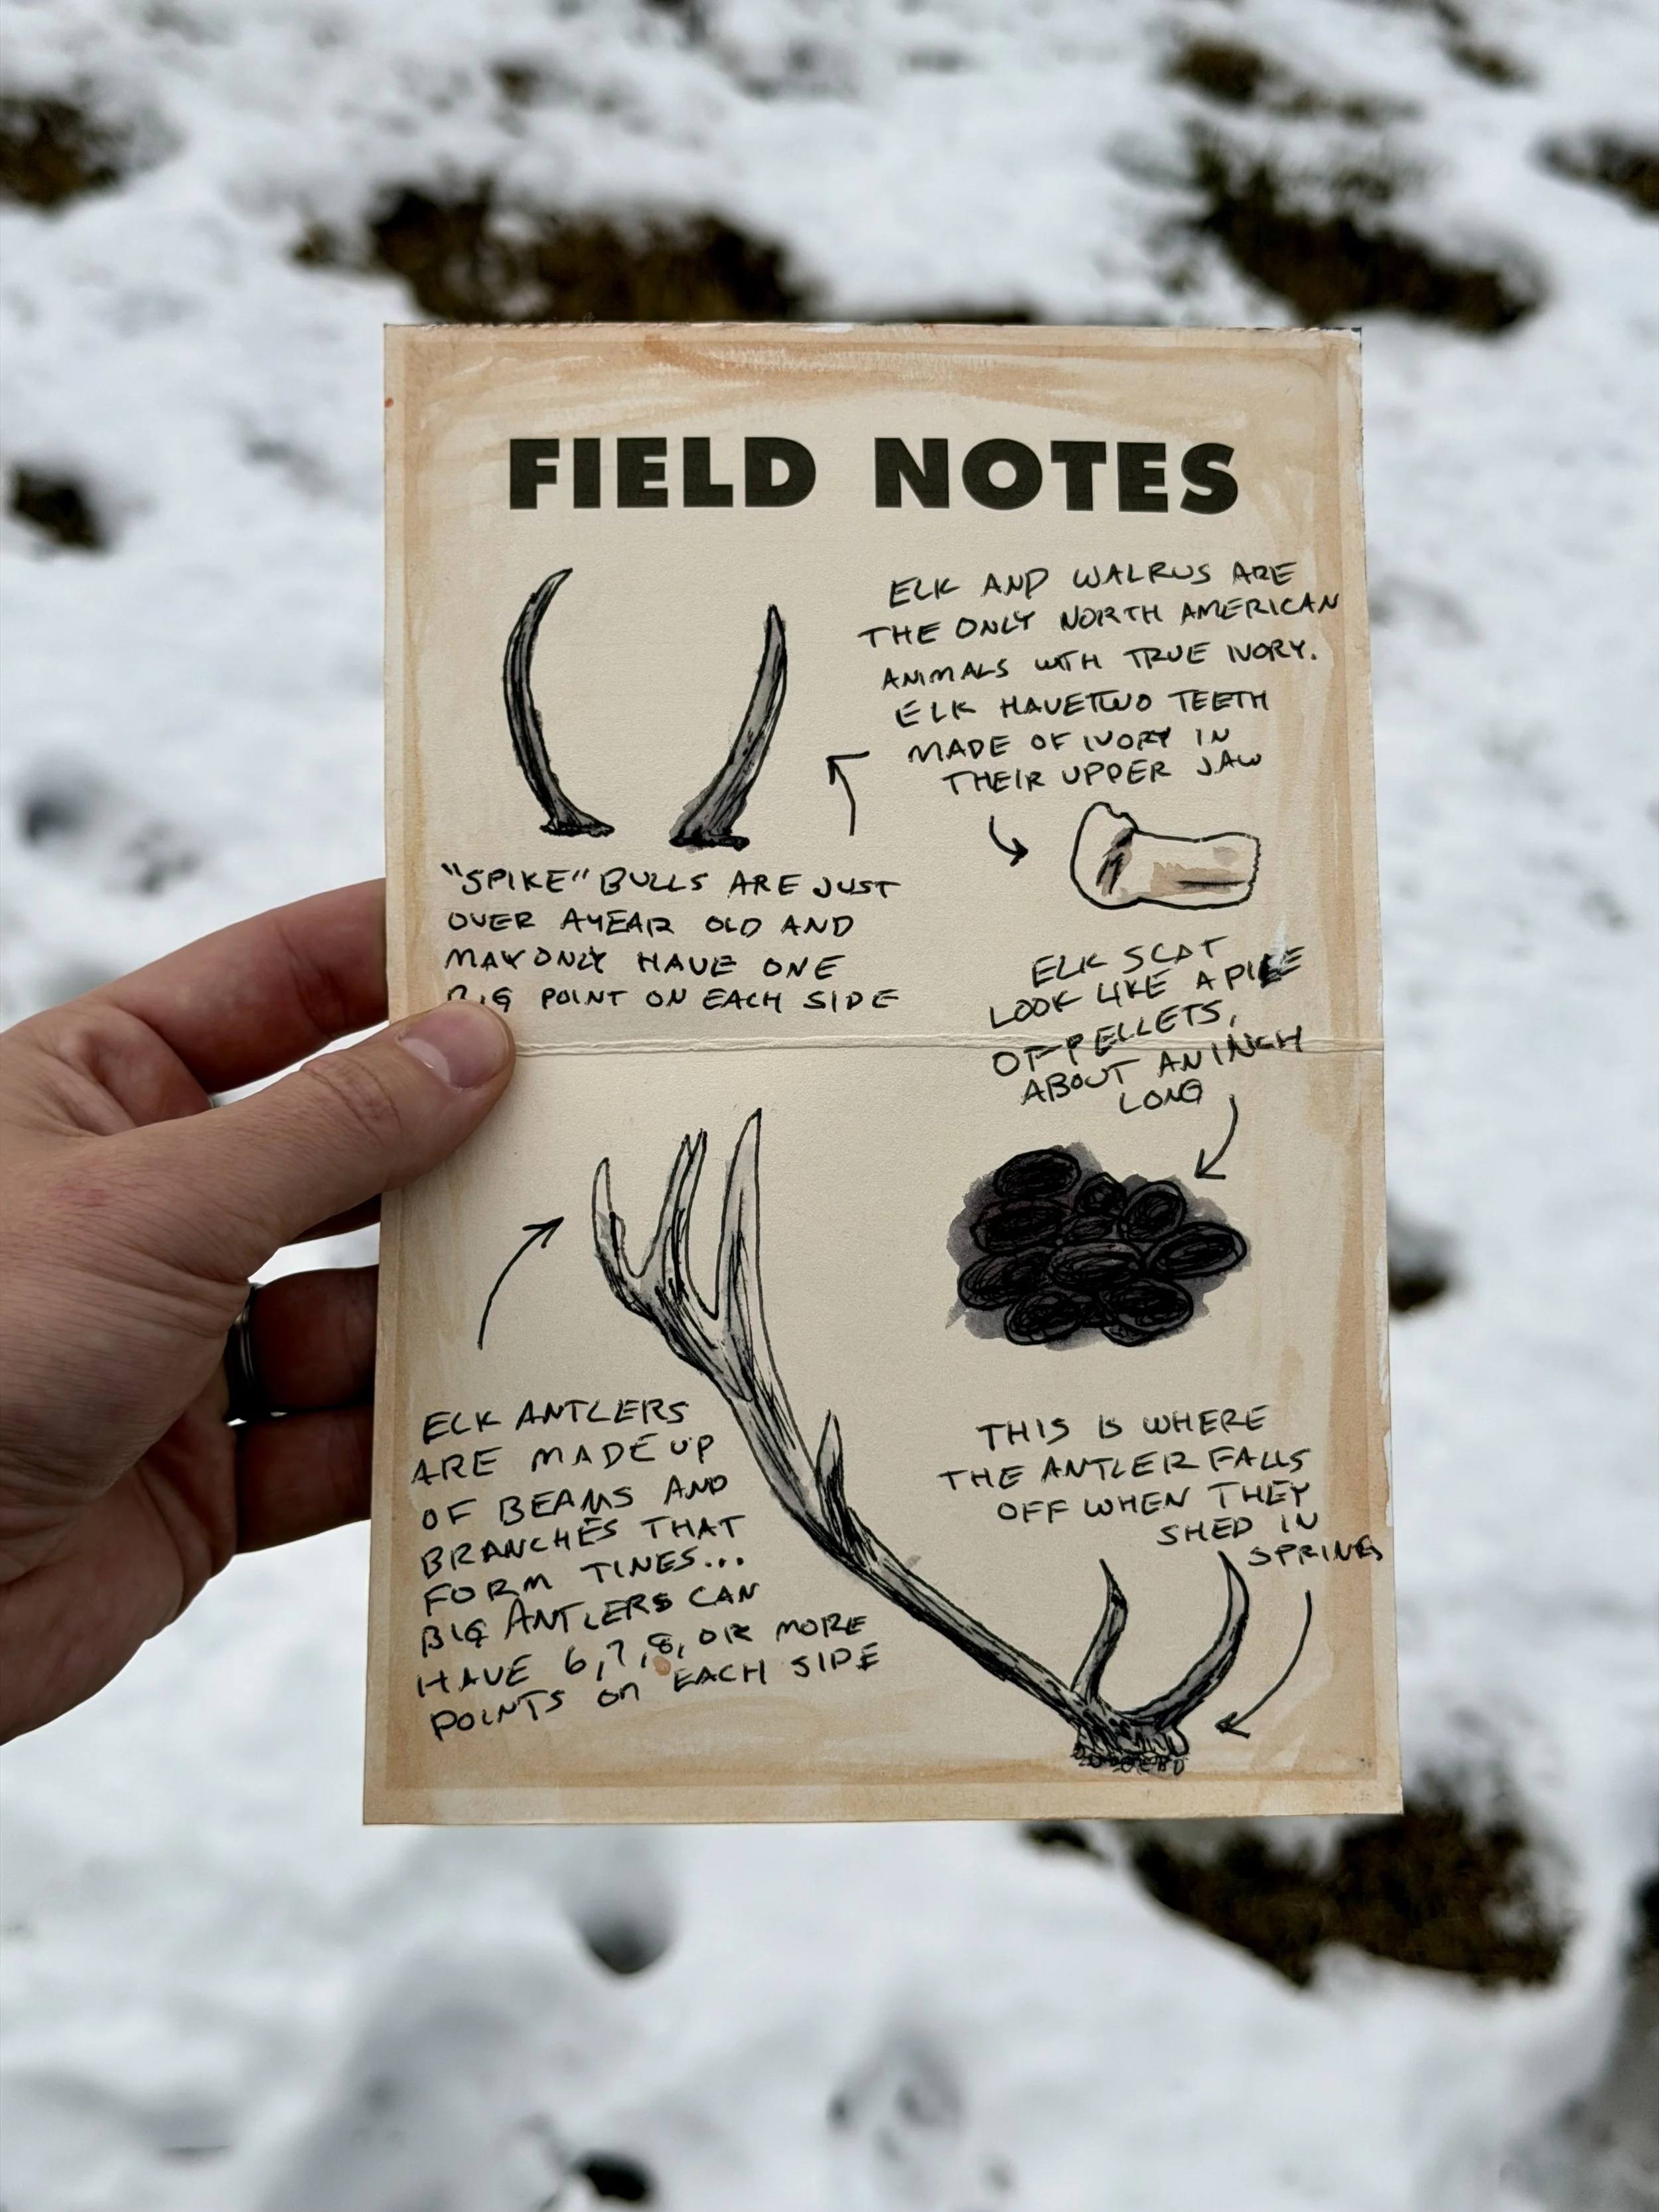 FIELD NOTES
ELK AND WALRUS ARE
THE ONLY NORTH AMERICAN
ANIMALS WITH TRUE IVORY.
ELK HAVE TWO TEETH
MADE OF IVORY IN
THEIR UPPER JAW
"SPIKE" BULLS ARE JUST
OVER A YEAR OLD AND
MAY ONLY HAVE ONE
BIG POINT ON EACH SIDE
ELK SCAT
LOOK LIKE A PILE
OF PELLETS,
ABOUT AN INCH
LONG
ELK ANTLERS
ARE MADE UP
OF BEAMS AND
BRANCHES THAT
FORM TINES...
BIG ANTLERS CAN
HAVE 6, 7, 8, OR MORE
POINTS ON EACH SIDE
THIS IS WHERE
THE ANTLER FALLS
OFF WHEN THEY
SHED IN
SPRING